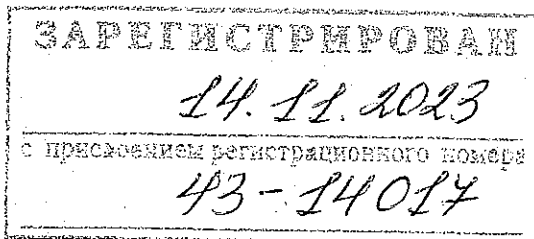 ЗАРЕГИСТРИРОВАН
14. 11. 2023
с присвоением регистрационного номера
43-14017